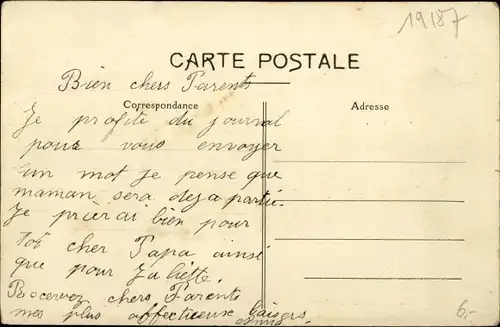 19187
CARTE POSTALE
Bien chers Parents
Correspondance
Adresse
Je profite du journal
pour vous envoyer
un mot je pense que
maman sera deja partie.
Je prierai bien pour
toi cher Papa ainsi
que pour Juliette.
Recevez chers Parents
mes plus affectueux baisers
6.-